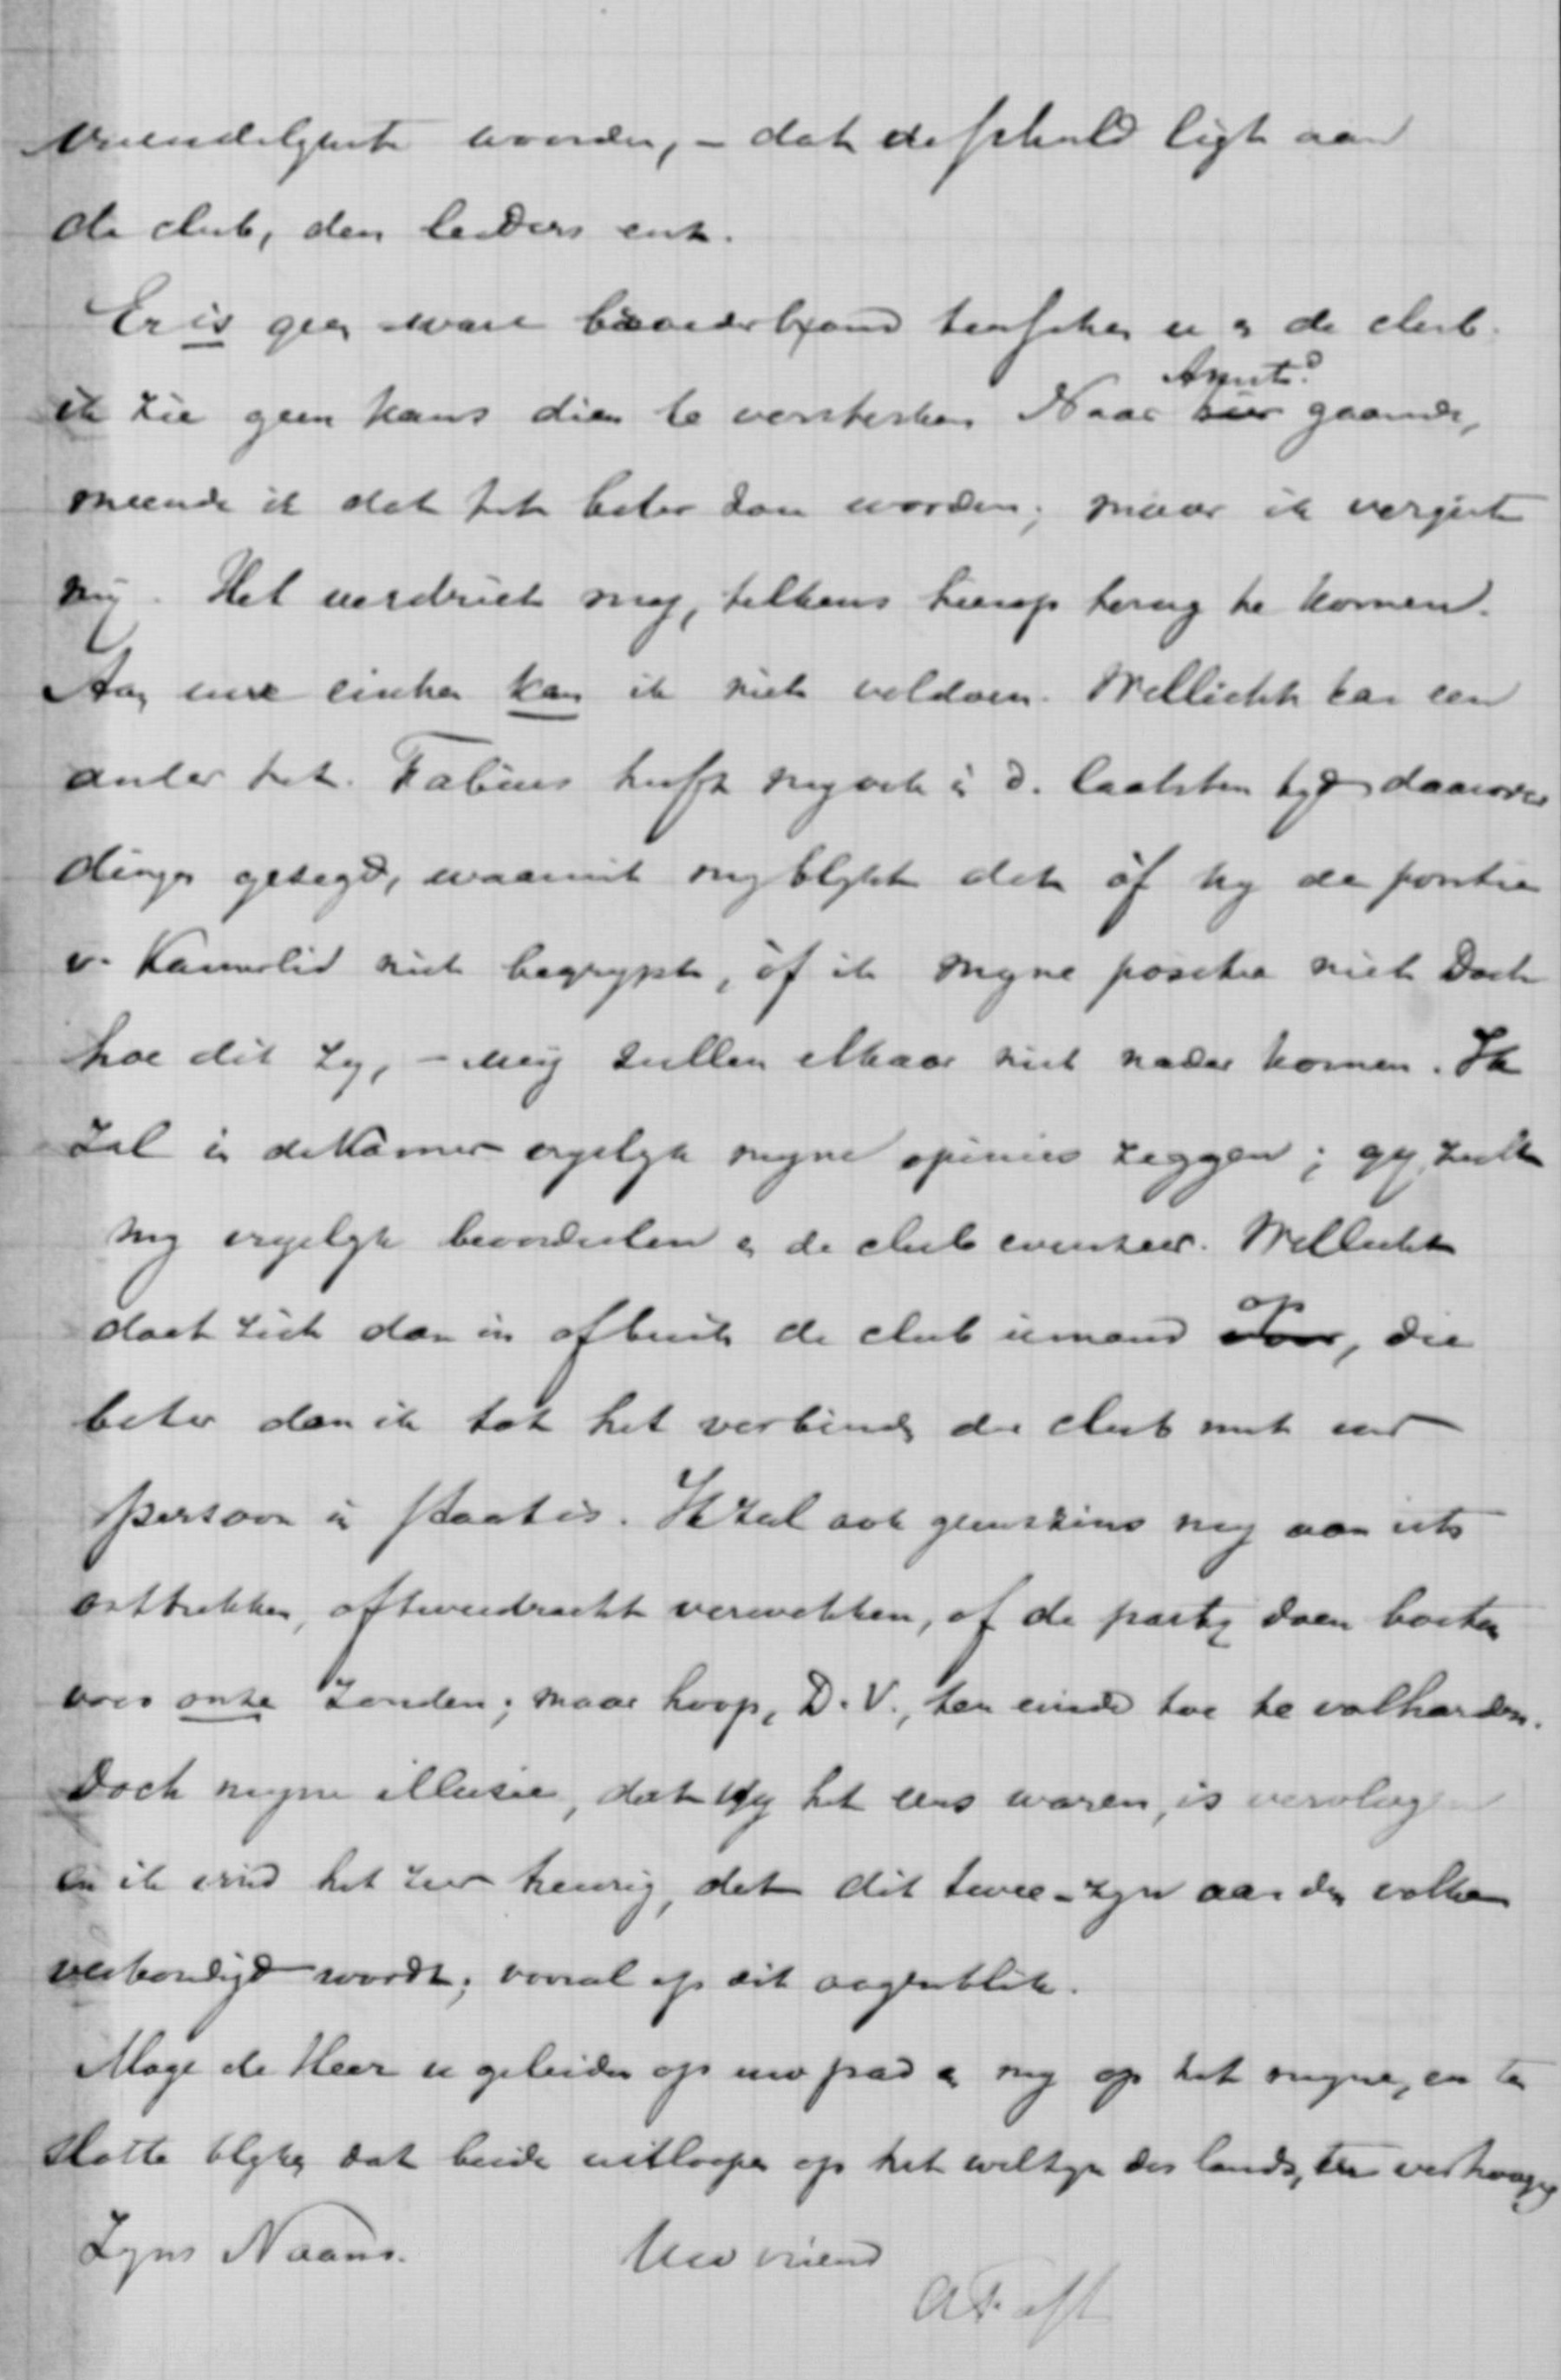 vriendelykste woorden, – dat de schuld ligt aan
de club, den leiders enz.
Er is geen ware broederband tusschen u en de club.
ik zie geen kans dien te versterken Naar Amst.d gaande,
meende ik dat het beter zou worden; maar ik vergist
mij. Het verdriet my, telkens hierop terug te komen.
Aan uwe eischen kan ik niet voldoen. Wellicht kan een
ander het. Fabius heeft my ook in d. laatsten tyd daarover
dingen gezegd, waaruit my blykt dat òf hy de positie
v. Kamerlid niet begrypt, òf ik myne positie niet Doch
hoe dit zy, – wij zullen elkaar niet nader komen. Ik
zal in de Kamer eerlyk myne opinies zeggen; gy zult
my eerlyk beoordeelen en de club evenzeer. Wellicht
doet zich dan in of buiten de club iemand op, die
beter dan ik tot het verbinden der club met uw
persoon in staat is. Ik zal ook geenszins my aan iets
onttrekken, of tweedracht verwekken, of de party doen boeten
voor onze zonden; maar hoop, D.V., ten einde toe te volharden.
Doch myne illusie, dat wy het eens waren, is vervlogen
en ik vind het zeer treurig, dat dit twee-zyn aan den volke
verkondigd wordt; vooral op dit oogenblik.
Moge de Heer u geleiden op uw pad en my op het myne, en ten
slotte blyken dat beide uitloopen op het welzyn des lands, ter verhooging
Zyns Naams. Uw vriend